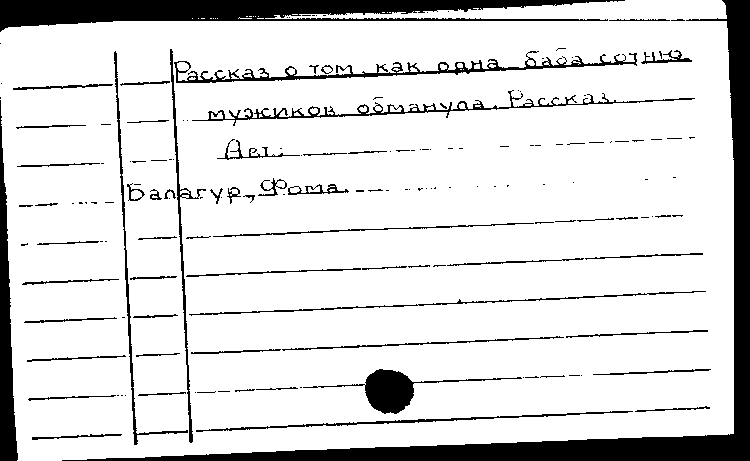 Рассказ о том, как одна баба сотню
мужиков обманула. Рассказ
Авт.:
Балагур, Фома.